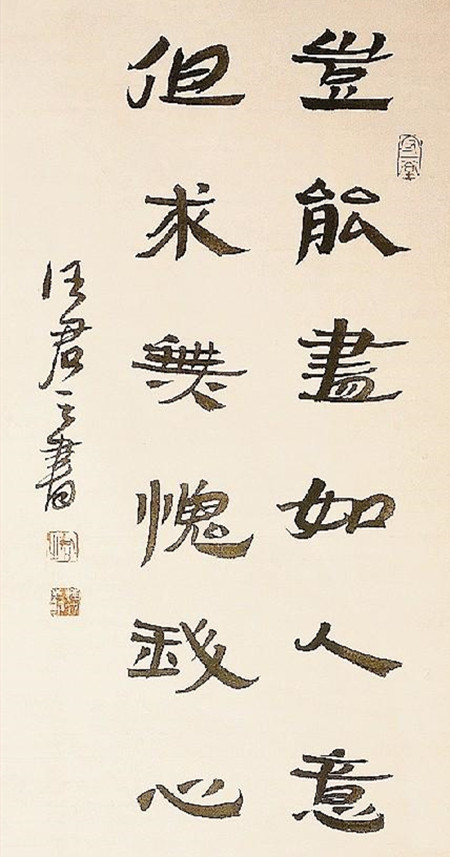 豈能盡如人意
但求無愧我心
汪君之書